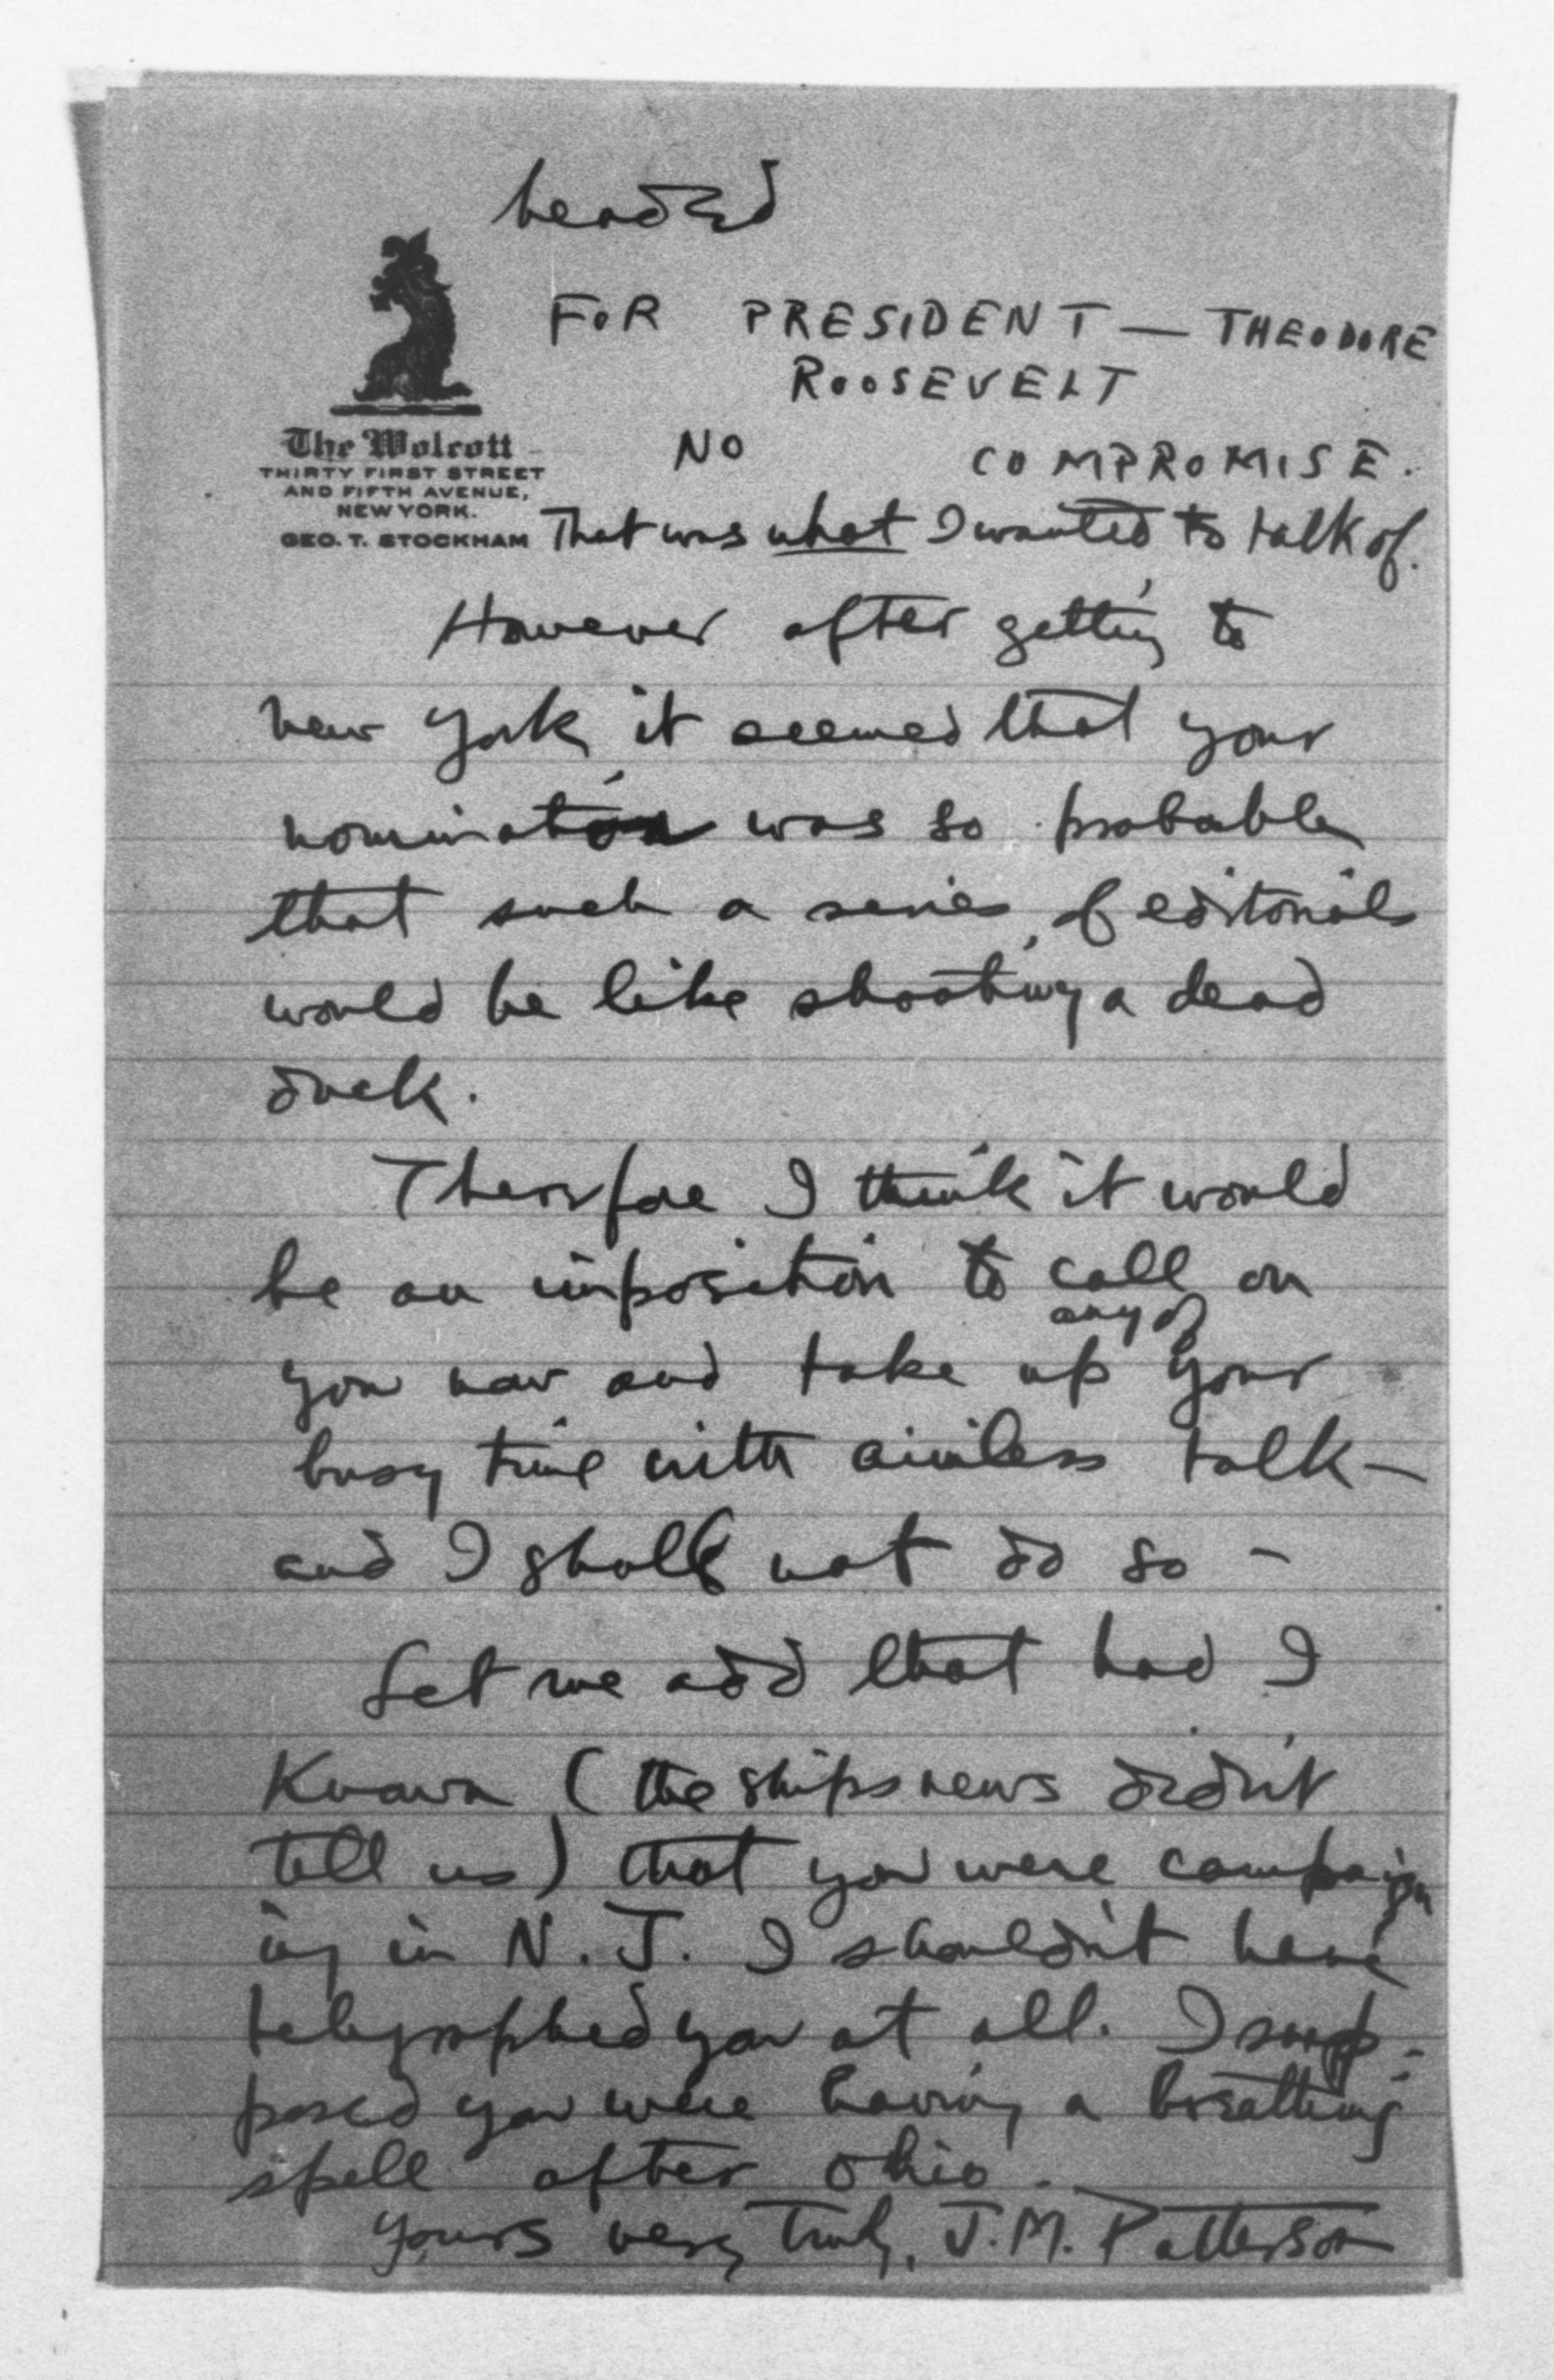 headed
FOR PRESIDENT — THEODORE
ROOSEVELT
NO COMPROMISE.
The Wolcott
THIRTY FIRST STREET
AND FIFTH AVENUE,
NEW YORK.
GEO. T. STOCKHAM
That was what I wanted to talk of.
However after getting to
new York, it seemed that your
nomination was so probable
that such a series of editorials
would be like shooting a dead
duck.
Therefore I think it would
be an imposition to call on
any of
you now and take up your
busy time with aimless talk—
and I shall not do so —
Let me add that had I
Known (the ships news didn't
tell us) that you were campaign
ing in N. J. I shouldn't have
telegraphed you at all. I sup-
posed you were having a breathing
spell after Ohio.
Yours very truly, J. M. Patterson